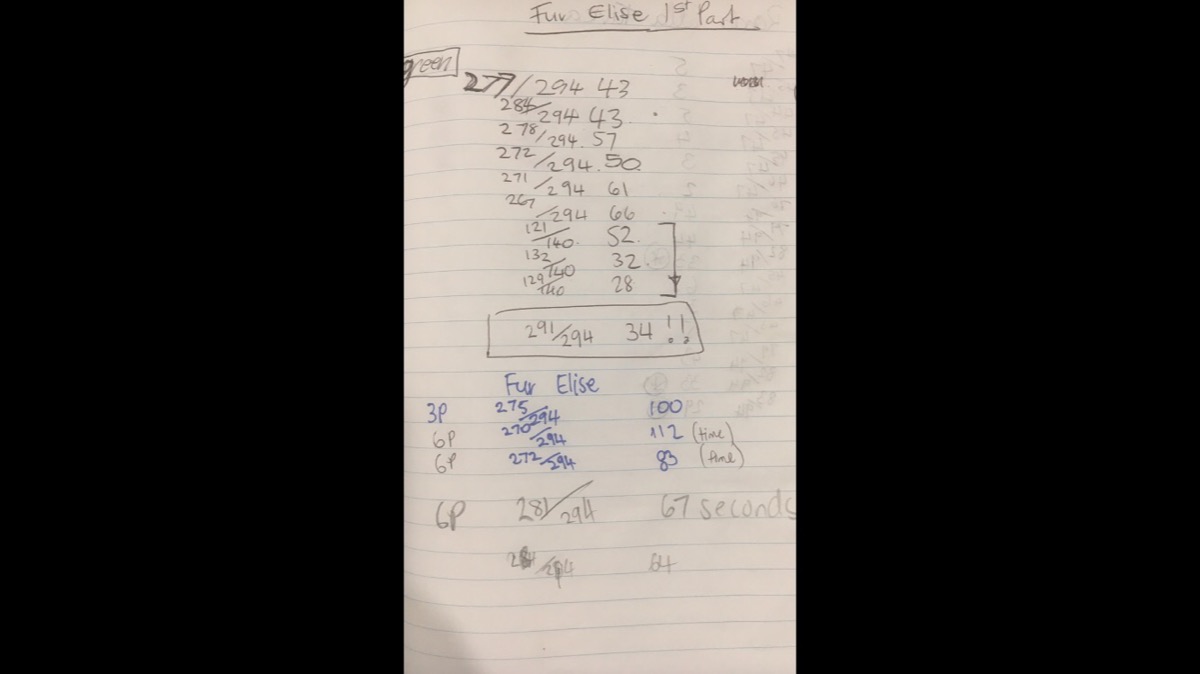 Fur Elise 1st Part
green
277/294 43
284/294 43.
278/294. 57
272/294. 50.
271/294 61
267/294 66
121/140. 52.
132/140 32
129/140 28
291/294 34 !!
Fur Elise
3P 275/294 100
6P 270/294 112 (time)
6P 272/294 83 (time)
6P 281/294 67 seconds
/294 64